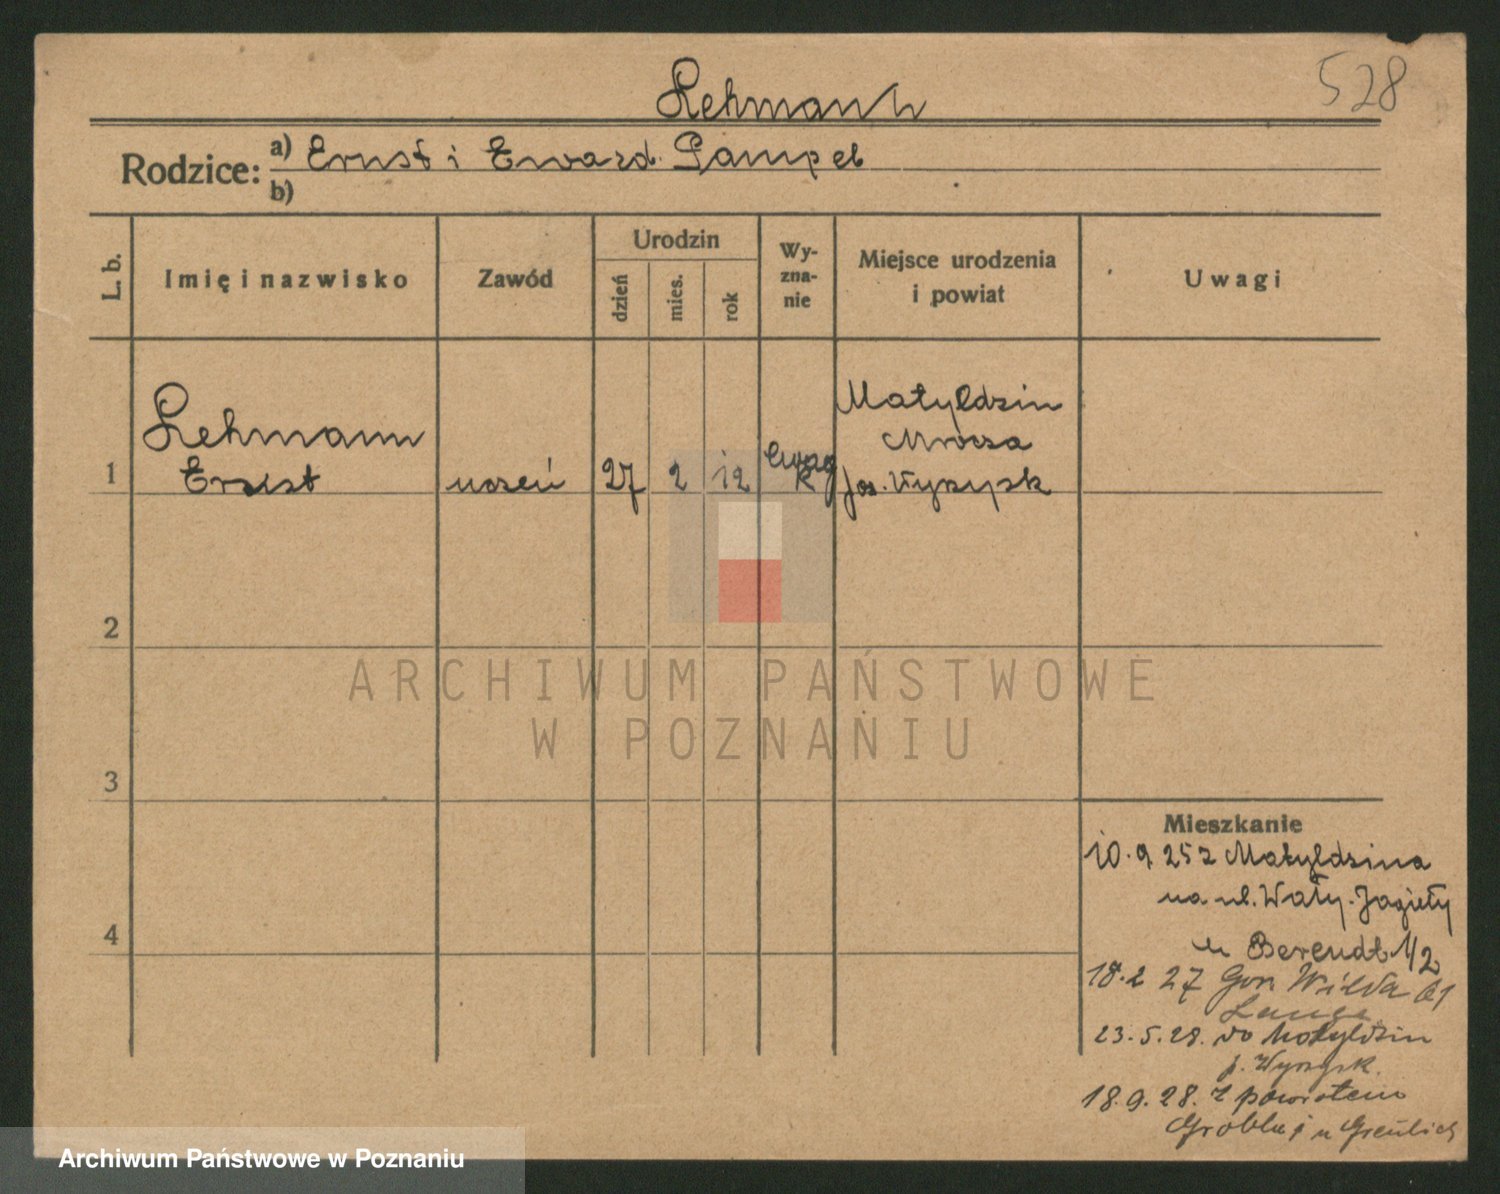 Lehmann
528
Rodzice: a) Ernst i Edward. Pampel
b)
L. b.
Imię i nazwisko
Zawód
Urodzin
dzień
mies.
rok
Wy-
zna-
nie
Miejsce urodzenia
i powiat
Uwagi
Lehmann
Ernst
uczeń
27
2
12
ewag
Matyldzin
Mrocza
Wyrzysk
1
2
3
4
Mieszkanie
10.9 25 z Matyldzina
na ul. Wały. Jagiełły
u Berendt 1/2
18.2 27 Gór Wilda 61
Lange
23.5.28. do Matyldzin
p. Wyrzysk.
18.9.28. z powrotem
Groblaj u Greulich
ARCHIWUM PAŃSTWOWE
W POZNANIU
Archiwum Państwowe w Poznaniu